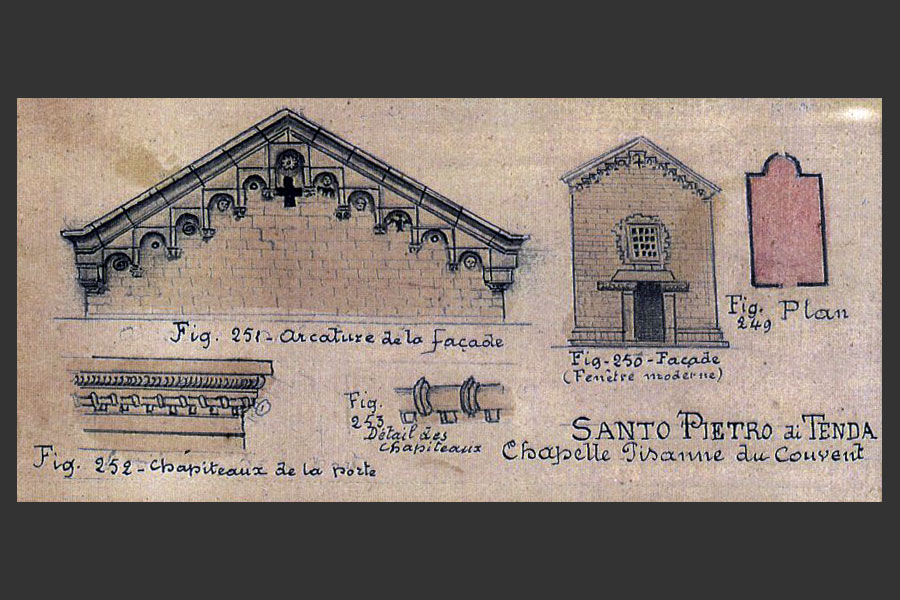 Fig. 251 - Arcature de la façade
Fig. 249 Plan
Fig - 250 - Façade
(Fenêtre moderne)
Fig. 252 - Chapiteaux de la porte
Fig.
253.
Détail des
Chapiteaux
SANTO PIETRO di TENDA
Chapelle Pisanne du Couvent